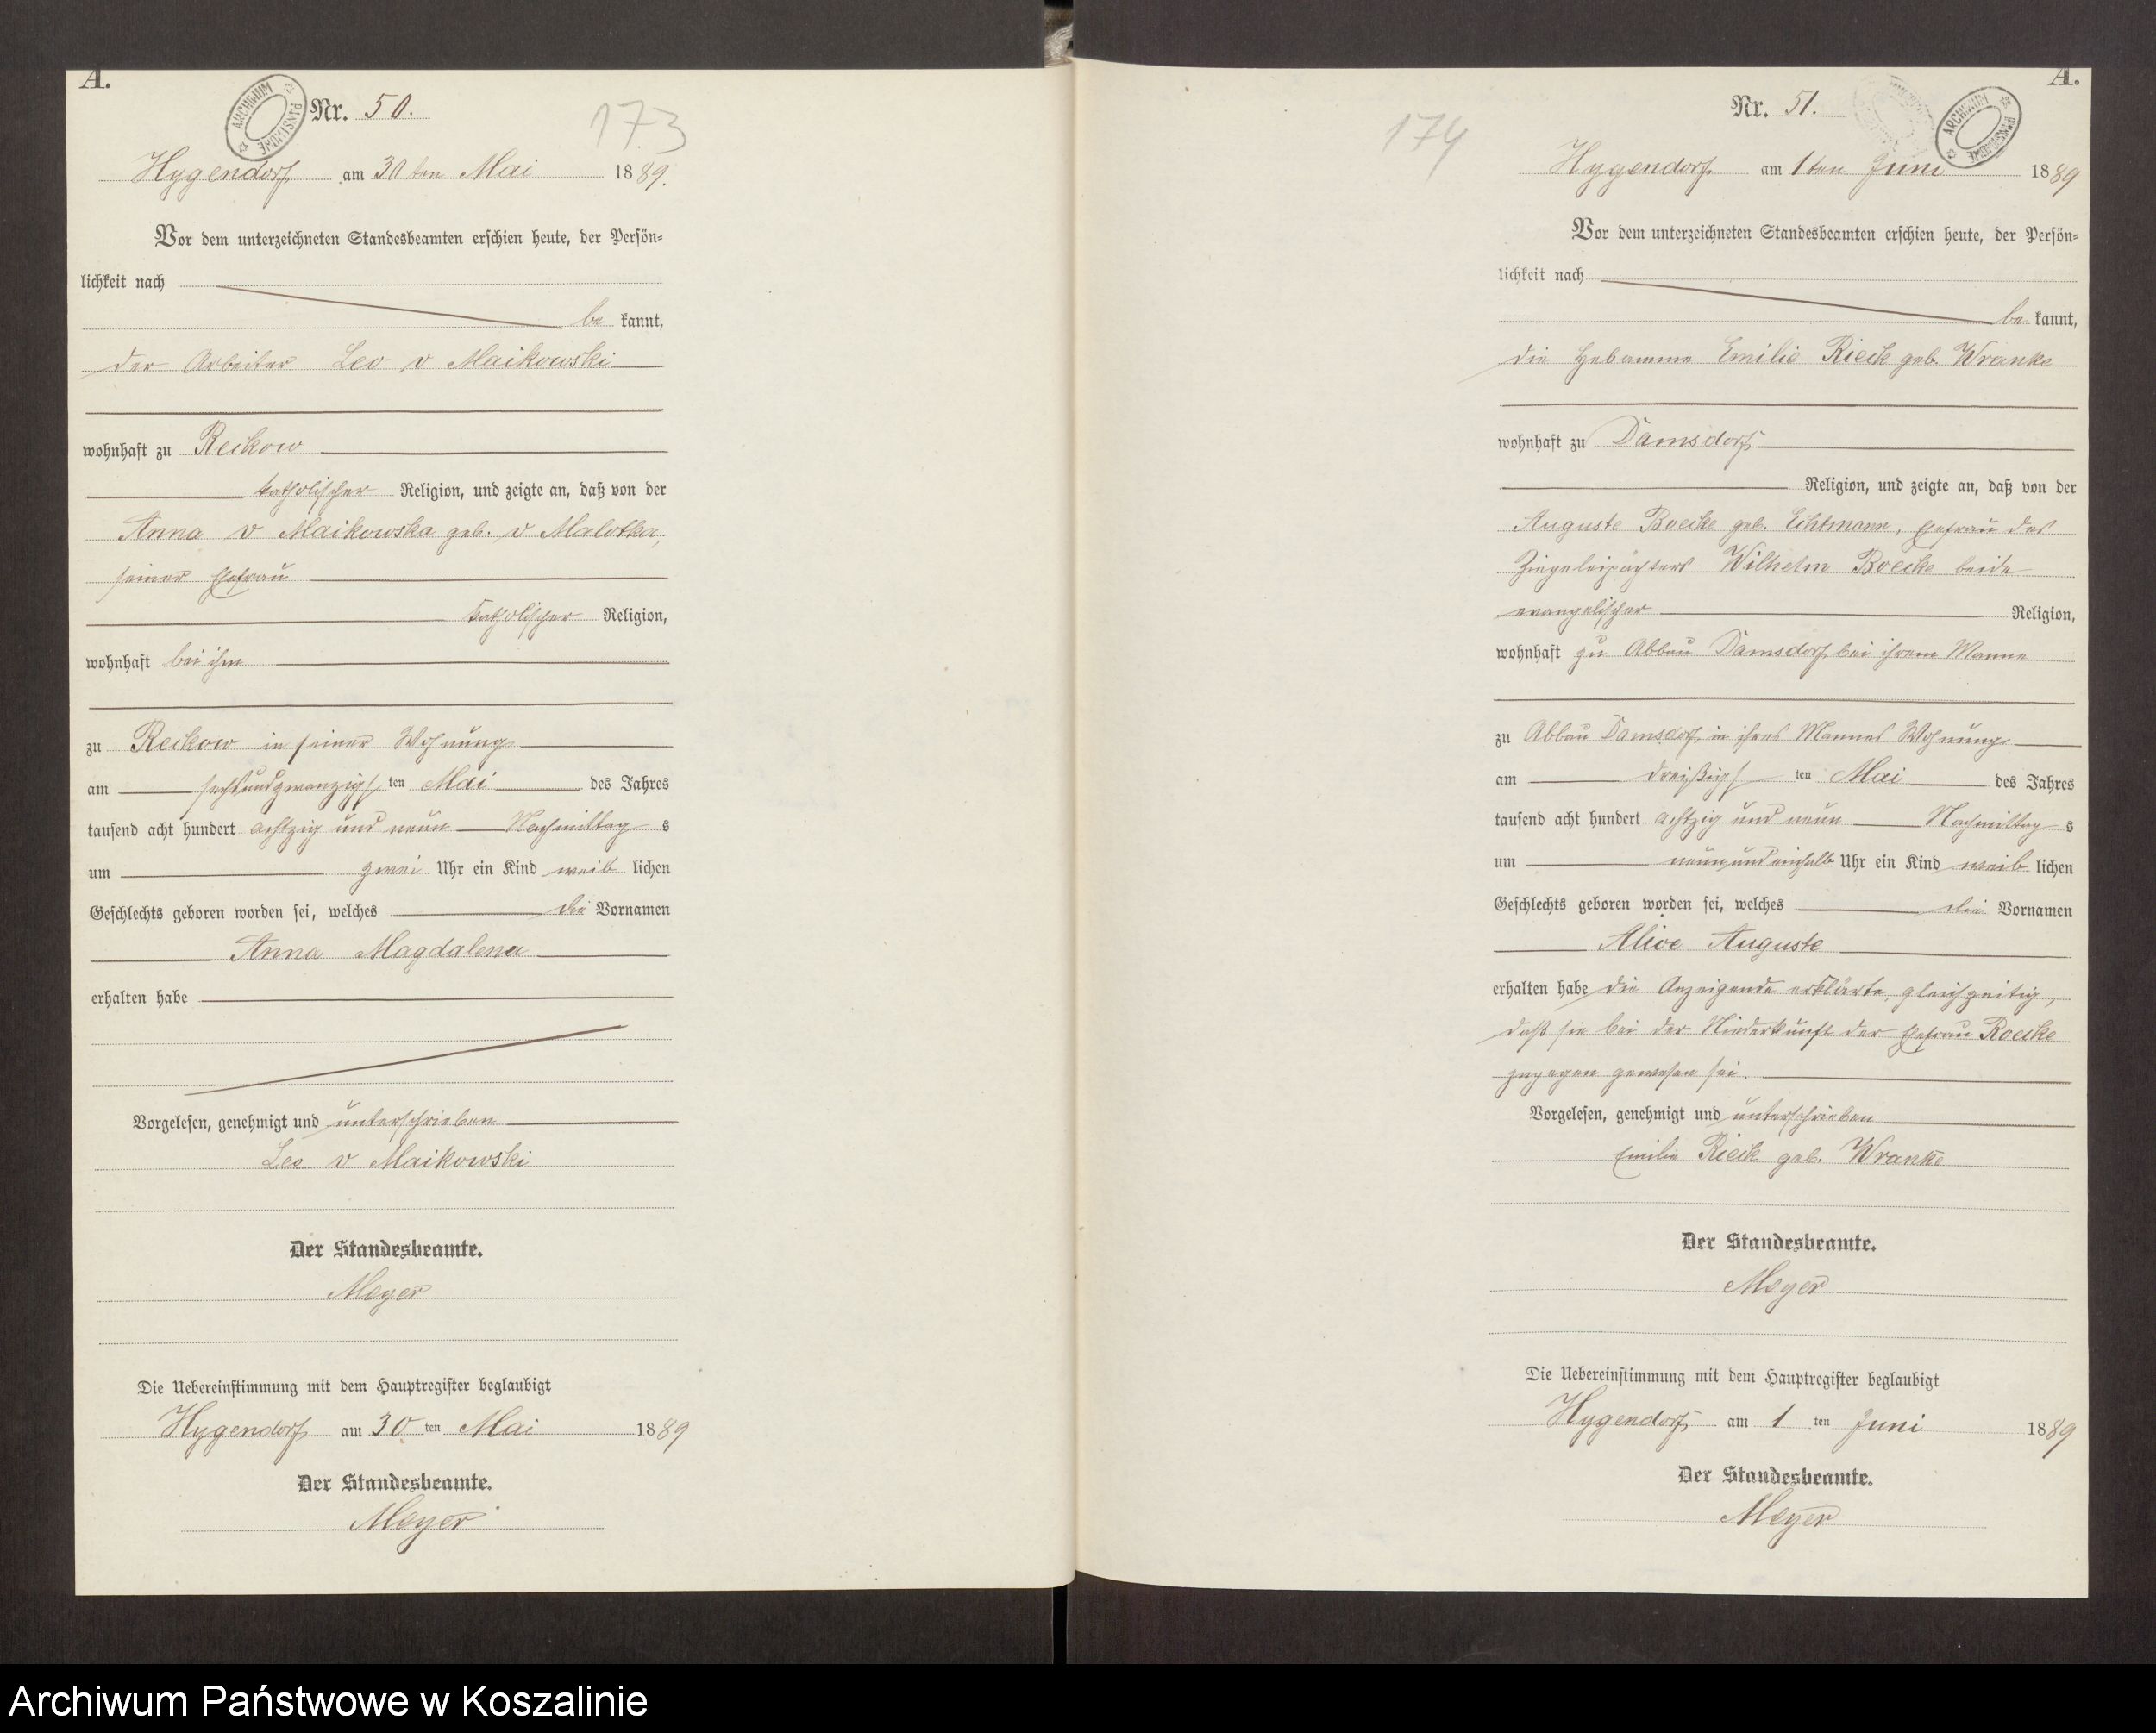 A.
ARCHIWUM PAŃSTWOWE
Nr. 50.
173
Hygendorf am 30 ten Mai 1889.
Vor dem unterzeichneten Standesbeamten erschien heute, der Persön-
lichkeit nach
be kannt,
der Arbeiter Leo v Maikowski
wohnhaft zu Reckow
katholischer Religion, und zeigte an, daß von der
Anna v Maikowska geb. v Malotka,
seiner Ehefrau
katholischer Religion,
wohnhaft bei ihm
zu Reckow in seiner Wohnung
am sechsundzwanzigsten Mai des Jahres
tausend acht hundert achtzig und neun Nachmittags
um zwei Uhr ein Kind weiblichen
Geschlechts geboren worden sei, welches die Vornamen
Anna Magdalena
erhalten habe
Vorgelesen, genehmigt und unterschrieben
Leo v Maikowski
Der Standesbeamte.
Meyer
Die Uebereinstimmung mit dem Hauptregister beglaubigt
Hygendorf am 30 ten Mai 1889
Der Standesbeamte.
Meyer
A.
ARCHIWUM PAŃSTWOWE
Nr. 51.
174
Hygendorf am 1ten Juni 1889
Vor dem unterzeichneten Standesbeamten erschien heute, der Persön-
lichkeit nach
be kannt,
die Hebamme Emilie Rieck geb. Wranke
wohnhaft zu Damsdorf
Religion, und zeigte an, daß von der
Auguste Boecke geb. Echtmann, Ehefrau des
Ziegeleipächters Wilhelm Boecke beide
evangelischer Religion,
wohnhaft zu Abbau Damsdorf bei ihrem Manne
zu Abbau Damsdorf in ihres Mannes Wohnung
am dreißigsten Mai des Jahres
tausend acht hundert achtzig und neun Nachmittags
um neun und einhalb Uhr ein Kind weiblichen
Geschlechts geboren worden sei, welches die Vornamen
Alice Auguste
erhalten habe die Anzeigende erklärte, gleichzeitig,
daß sie bei der Niederkunft der Ehefrau Boecke
zugegen gewesen sei.
Vorgelesen, genehmigt und unterschrieben
Emilie Rieck geb. Wranke
Der Standesbeamte.
Meyer
Die Uebereinstimmung mit dem Hauptregister beglaubigt
Hygendorf am 1 ten Juni 1889
Der Standesbeamte.
Meyer
Archiwum Państwowe w Koszalinie